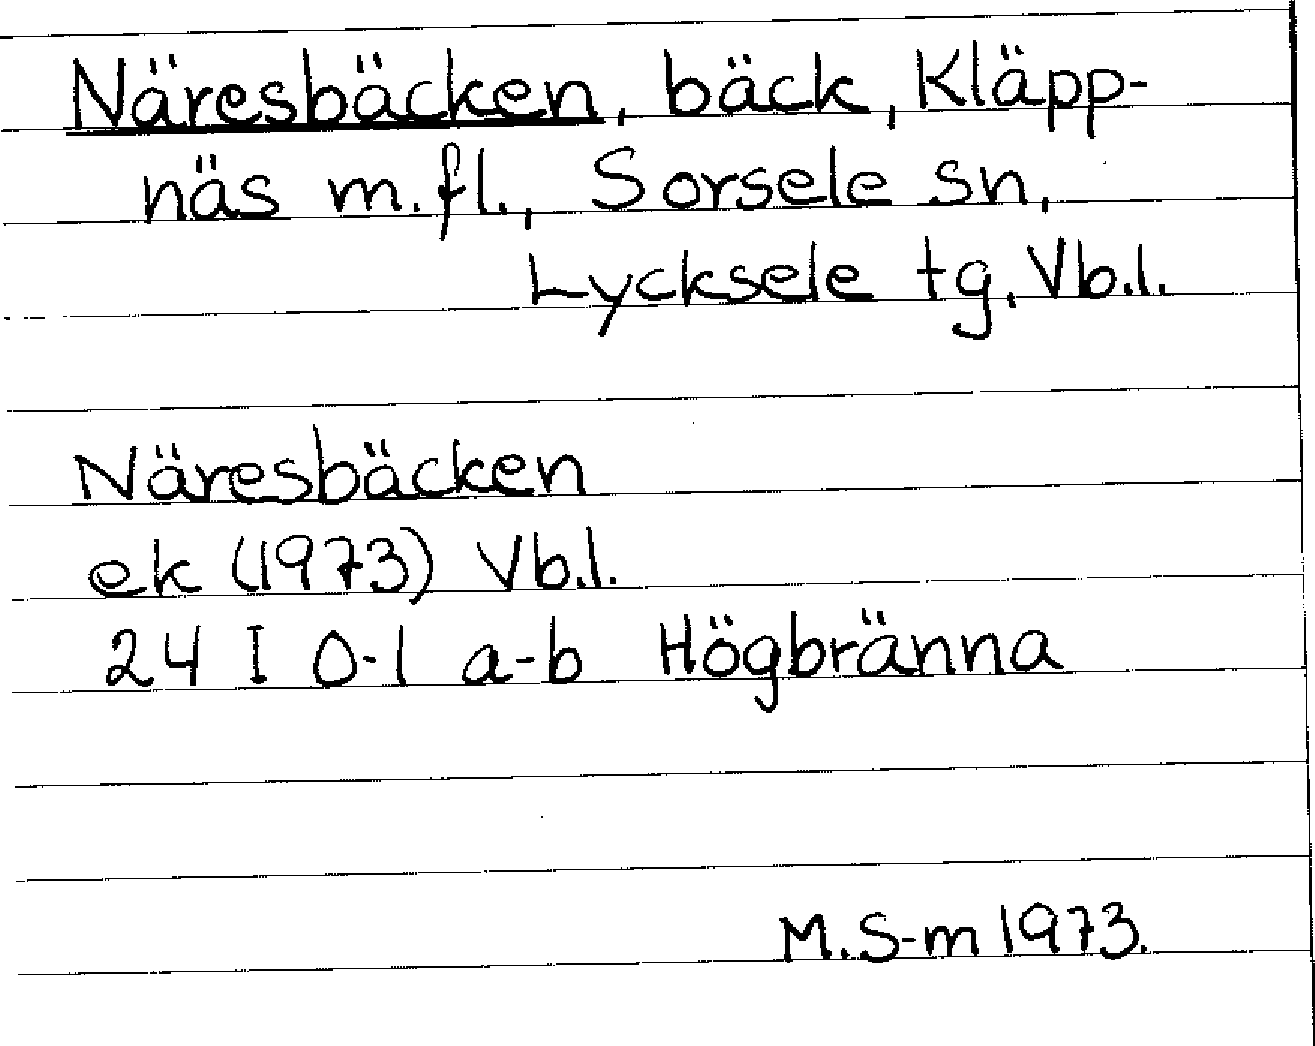 Näresbäcken, bäck, Kläpp-
näs m.fl., Sorsele sn,
Lycksele tg, Vb.l.
Näresbäcken
ek (1973) Vb.l.
24 I 0-1 a-b Högbränna
M.S-m 1973.